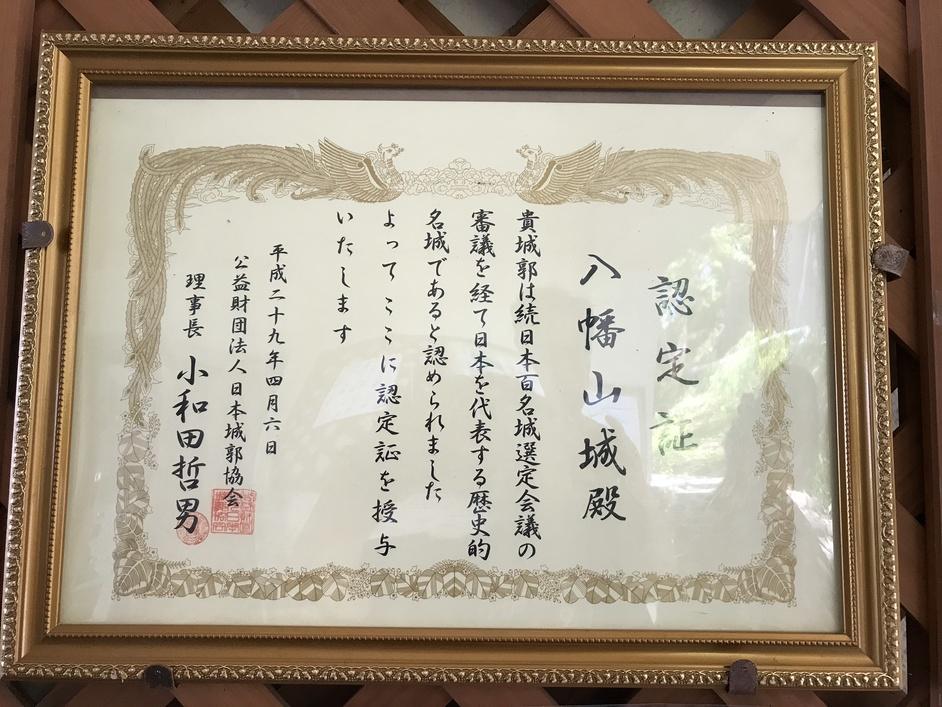 認定証
八幡山城殿
貴城郭は続日本百名城選定会議の
審議を経て日本を代表する歴史的
名城であると認められました
よってここに認定証を授与
いたします
平成二十九年四月六日
公益財団法人日本城郭協会
理事長 小和田哲男